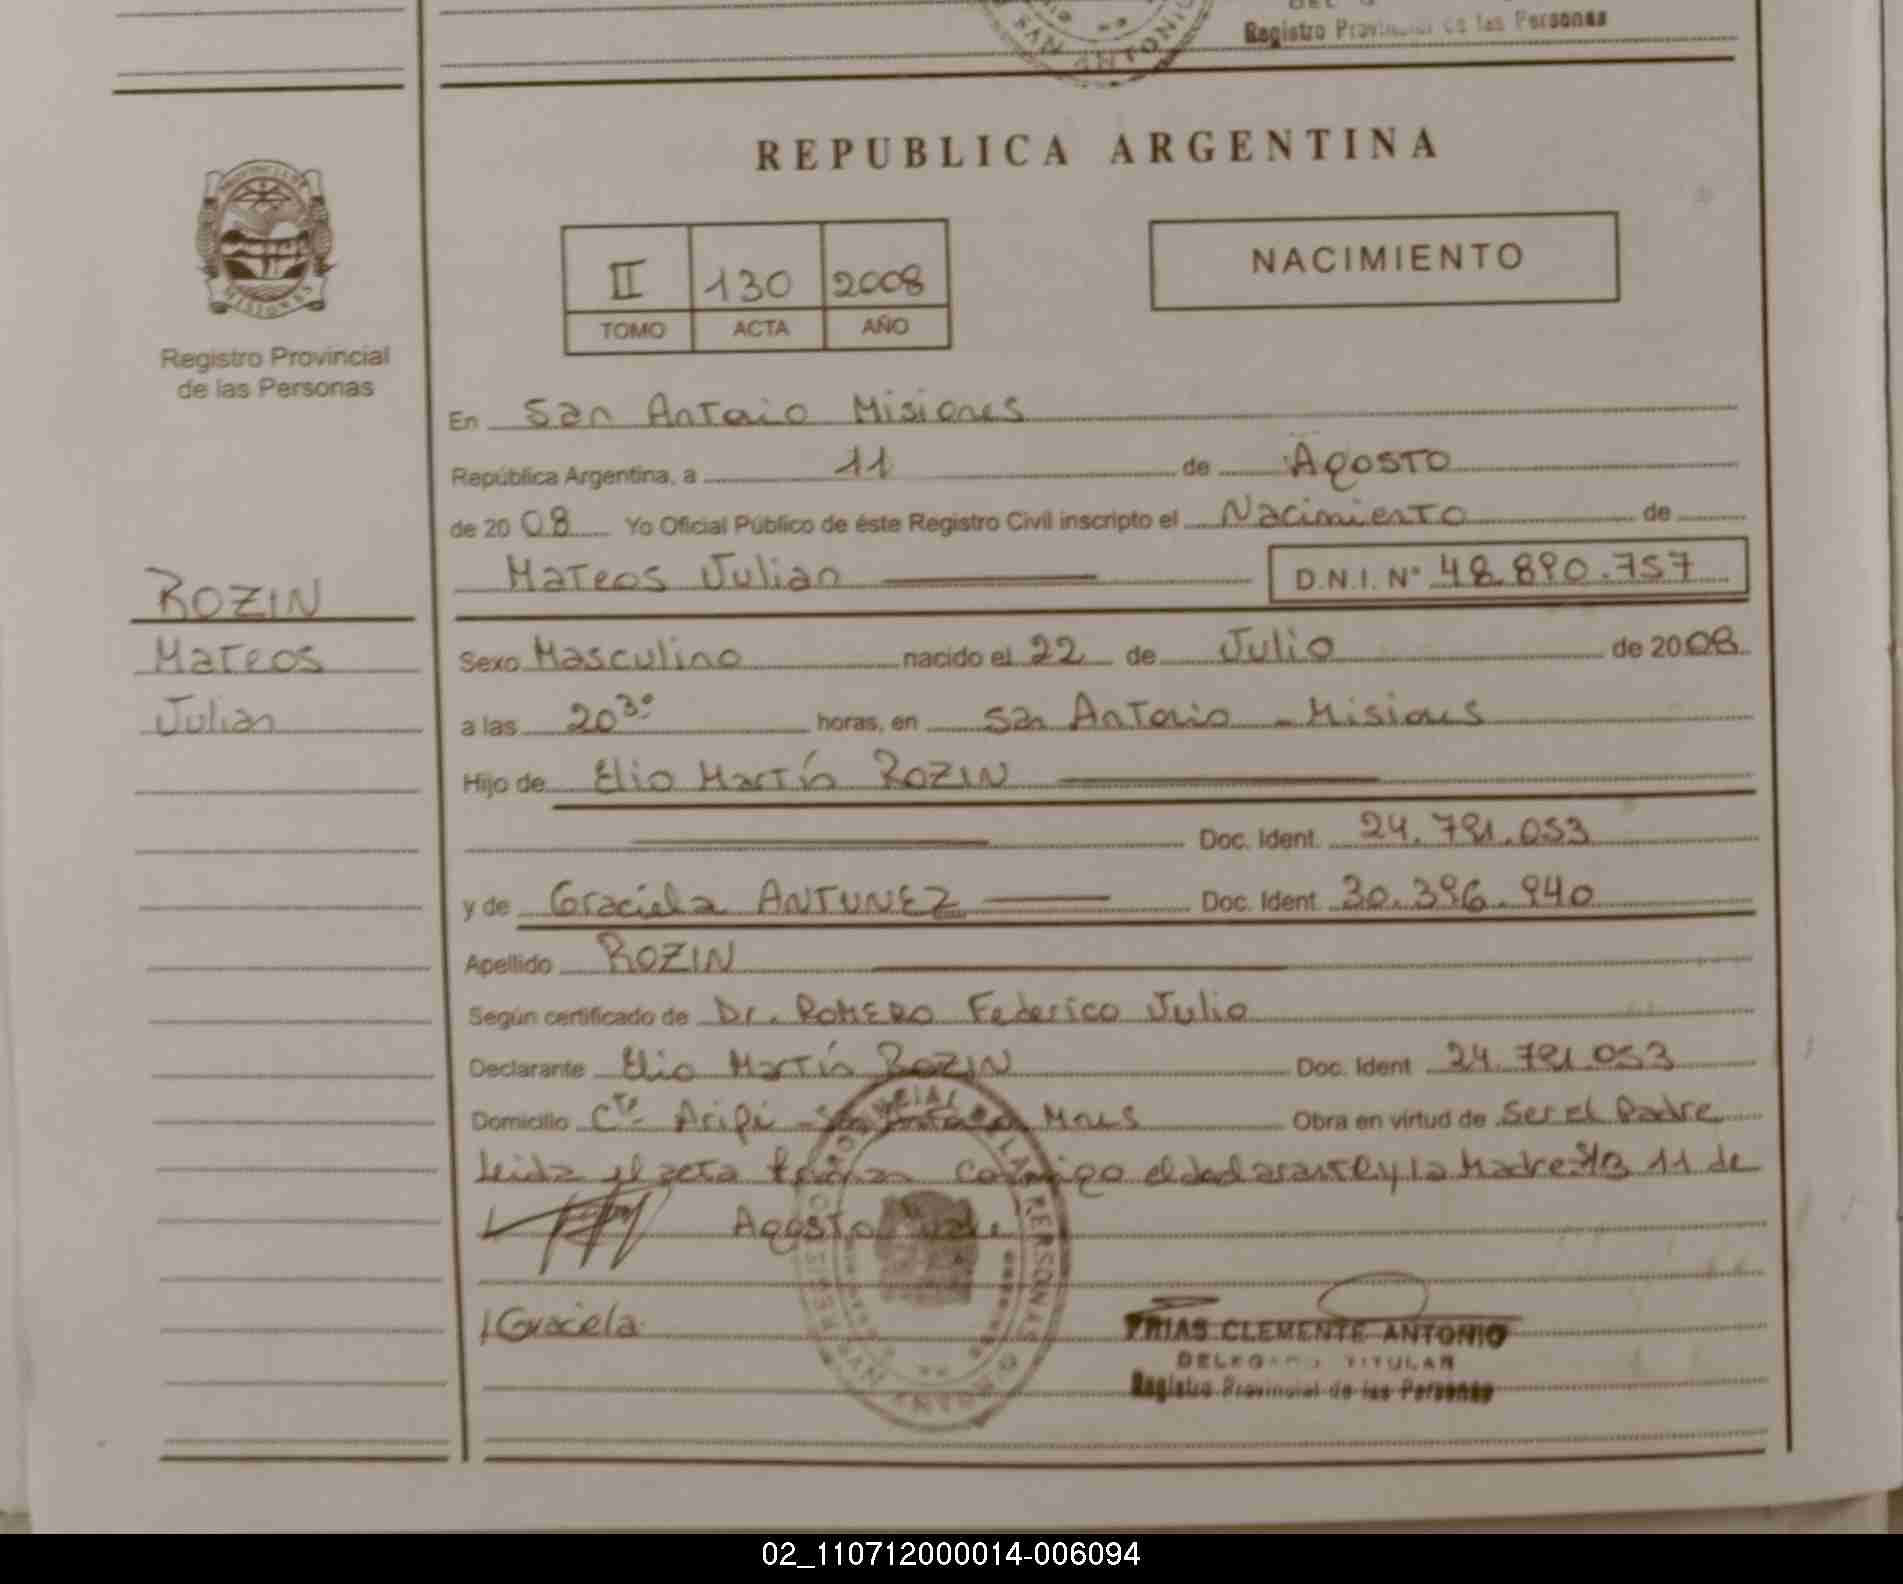 Registro Provincial de las Personas
SAN ANTONIO
REPUBLICA ARGENTINA
PROVINCIA DE
MISIONES
Registro Provincial
de las Personas
II 130 2008
TOMO ACTA AÑO
NACIMIENTO
En San Antonio Misiones
República Argentina, a 11 de Agosto
de 2008 Yo Oficial Público de éste Registro Civil inscripto el Nacimiento de
Mateos Julian D.N.I. Nº 48.890.757
ROZIN
Mateos
Julian
Sexo Masculino nacido el 22 de Julio de 2008
a las 20³⁰ horas, en San Antonio - Misiones
Hijo de Elio Martín ROZIN
Doc. Ident. 24.791.053
y de Graciela ANTUNEZ Doc. Ident. 30.396.940
Apellido ROZIN
Según certificado de Dr. ROMERO Federico Julio
Declarante Elio Martín ROZIN Doc. Ident 24.791.053
Domicilio Cte Aripi - San Antonio Mnes Obra en virtud de Ser el Padre
Leida el acta firman conmigo el declarante y la Madre 11 de
Agosto
Graciela
PROVINCIAL DE LAS PERSONAS
SAN ANTONIO
FRIAS CLEMENTE ANTONIO
DELEGADO TITULAR
Registro Provincial de las Personas
02_110712000014-006094